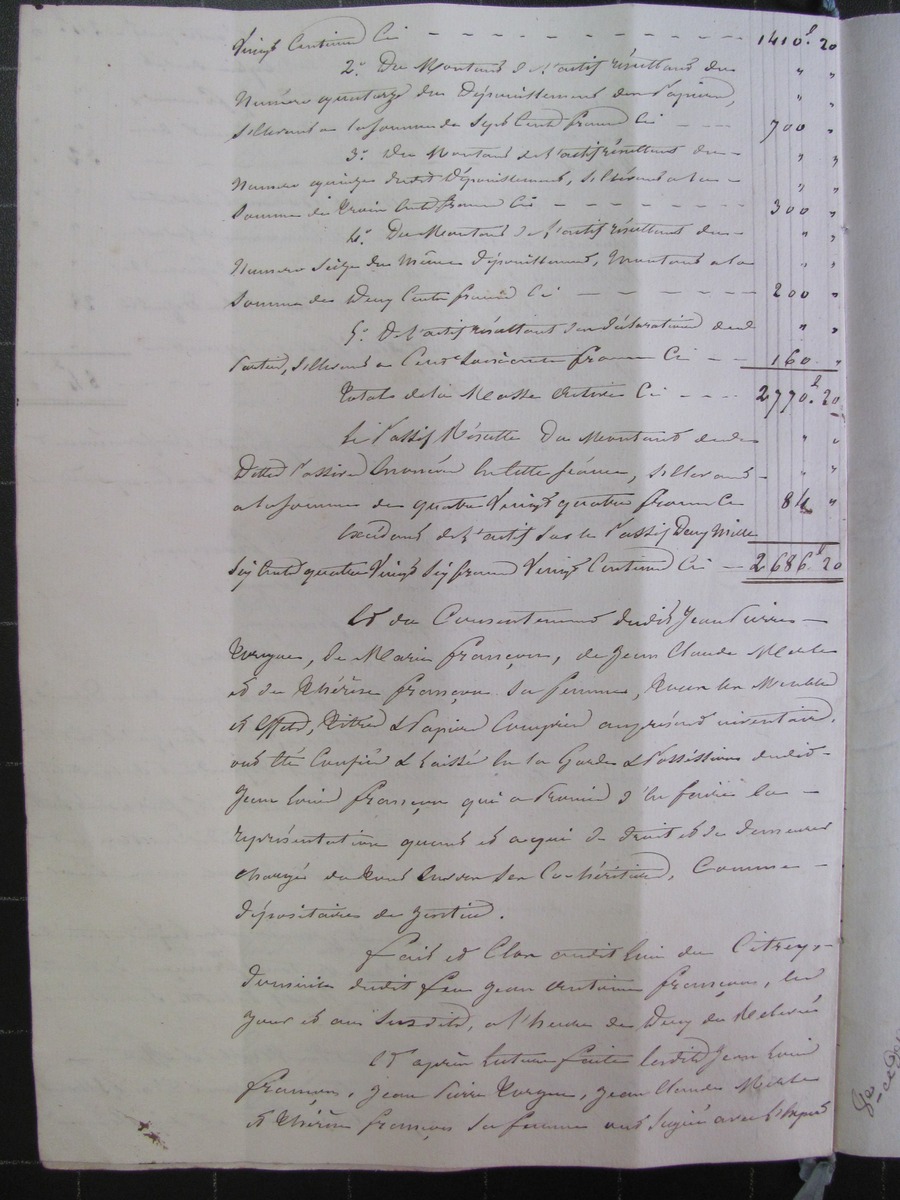 Vingt Centimes Ci - - - - - - - - - 1410.f 20
2.° Du Montant de l'actif résultant du " "
Numéro quatorze du Dépouillement des Papiers, " "
S'élevant a la somme de Sept Cents francs Ci - - - 700 "
3.° Du Montant de l'actif résultant du - " "
Numéro quinze dudit Dépouillement, S'élevant a la - " "
Somme de Trois Cents francs Ci - - - - - - 300 "
4.° Du Montant de l'actif résultant du - " "
Numéro Seize du même dépouillement, Montant a la " "
Somme de Deux Cents francs Ci - - - - - 200 "
5.° De l'actif résultant des déclarations " "
, S'élevant a Cent Soixante francs Ci - - 160 "
Total de la Masse Active Ci - - - - 2770.f 20
Le Passif Résulte Du Montant des " "
Dettes Passives énoncées en cette séance, S'élevant - " "
a la somme de quatre Vingt quatre francs Ci 84 "
Excédant de l'actif Sur le Passif Deux Mille
Six Cents quatre Vingt Six francs Vingt Centimes Ci - 2686.f 20
Et du Consentement dudit Jean Pierre -
, de Marie françoise, de Jean Claude
et de Thérèse françois Sa femme, Tous les Meubles
et Effets, Titres & Papiers Compris au présent inventaire,
ont été Confiés & Laissés en la Garde & Possession dudit -
Jean Louis françois qui a Promis d'en faire la -
représentation quand et a qui de droit et de demeurer
chargé du tout Envers Ses Cohéritiers, Comme -
dépositaire de Justice.
fait et Clos audit lieu de Citrey,
domicile dudit feu Jean Antoine françois, les
jour et an Susdits, a l'heure de Deux de Relevée
Et après lecture faite lesdits Jean Louis
françois, Jean Pierre , Jean Claude
et Thérèse françois Sa femme ont Signé avec